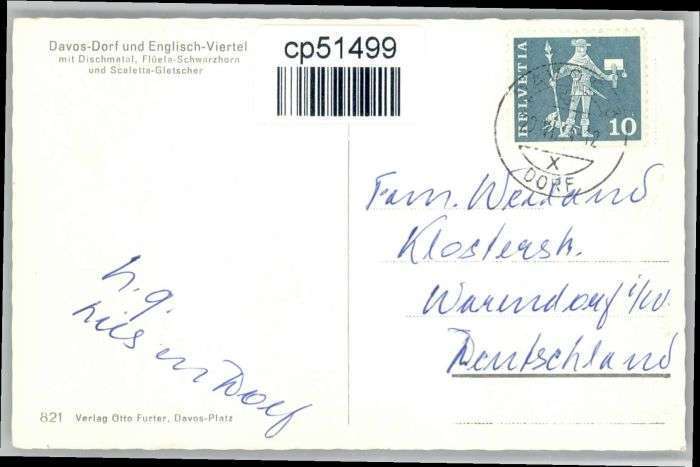 Davos-Dorf und Englisch-Viertel
mit Dischmatal, Flüela-Schwarzhorn
und Scaletta-Gletscher
cp51499
HELVETIA
10
X
DORF
Fam. Weiland
Klosterstr.
Warendorf i/W.
Deutschland
h. g.
Dorf
821 Verlag Otto Furter, Davos-Platz